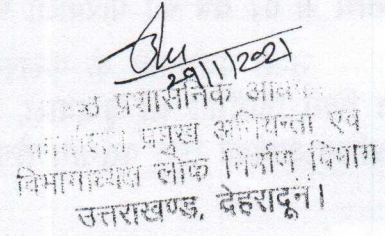 29/1/2021
प्रशासनिक
प्रमुख अभियन्ता एवं
विभागाध्यक्ष लोक निर्माण विभाग
उत्तराखण्ड, देहरादून।